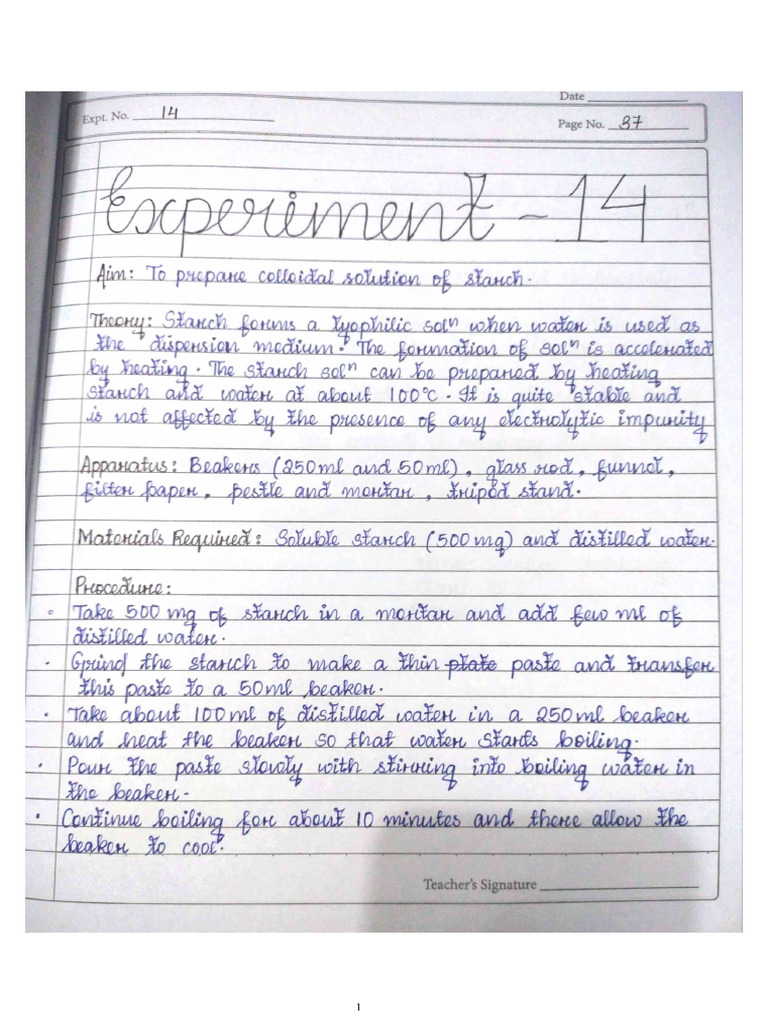 Date
Expt. No. 14
Page No. 37
Experiment - 14
Aim: To prepare colloidal solution of starch.
Theory: Starch forms a lyophilic solⁿ when water is used as
the dispersion medium. The formation of solⁿ is accelerated
by heating. The starch solⁿ can be prepared by heating
starch and water at about 100°C. It is quite stable and
is not affected by the presence of any electrolytic impurity
Apparatus: Beakers (250ml and 50ml), glass rod, funnel,
filter paper, pestle and mortar, tripod stand.
Materials Required: Soluble starch (500mg) and distilled water.
Procedure:
• Take 500 mg of starch in a mortar and add few ml of
distilled water.
• Grind the starch to make a thin plate paste and transfer
this paste to a 50ml beaker.
• Take about 100ml of distilled water in a 250ml beaker
and heat the beaker so that water starts boiling.
• Pour the paste slowly with stirring into boiling water in
the beaker.
• Continue boiling for about 10 minutes and there allow the
beaker to cool.
Teacher's Signature
1